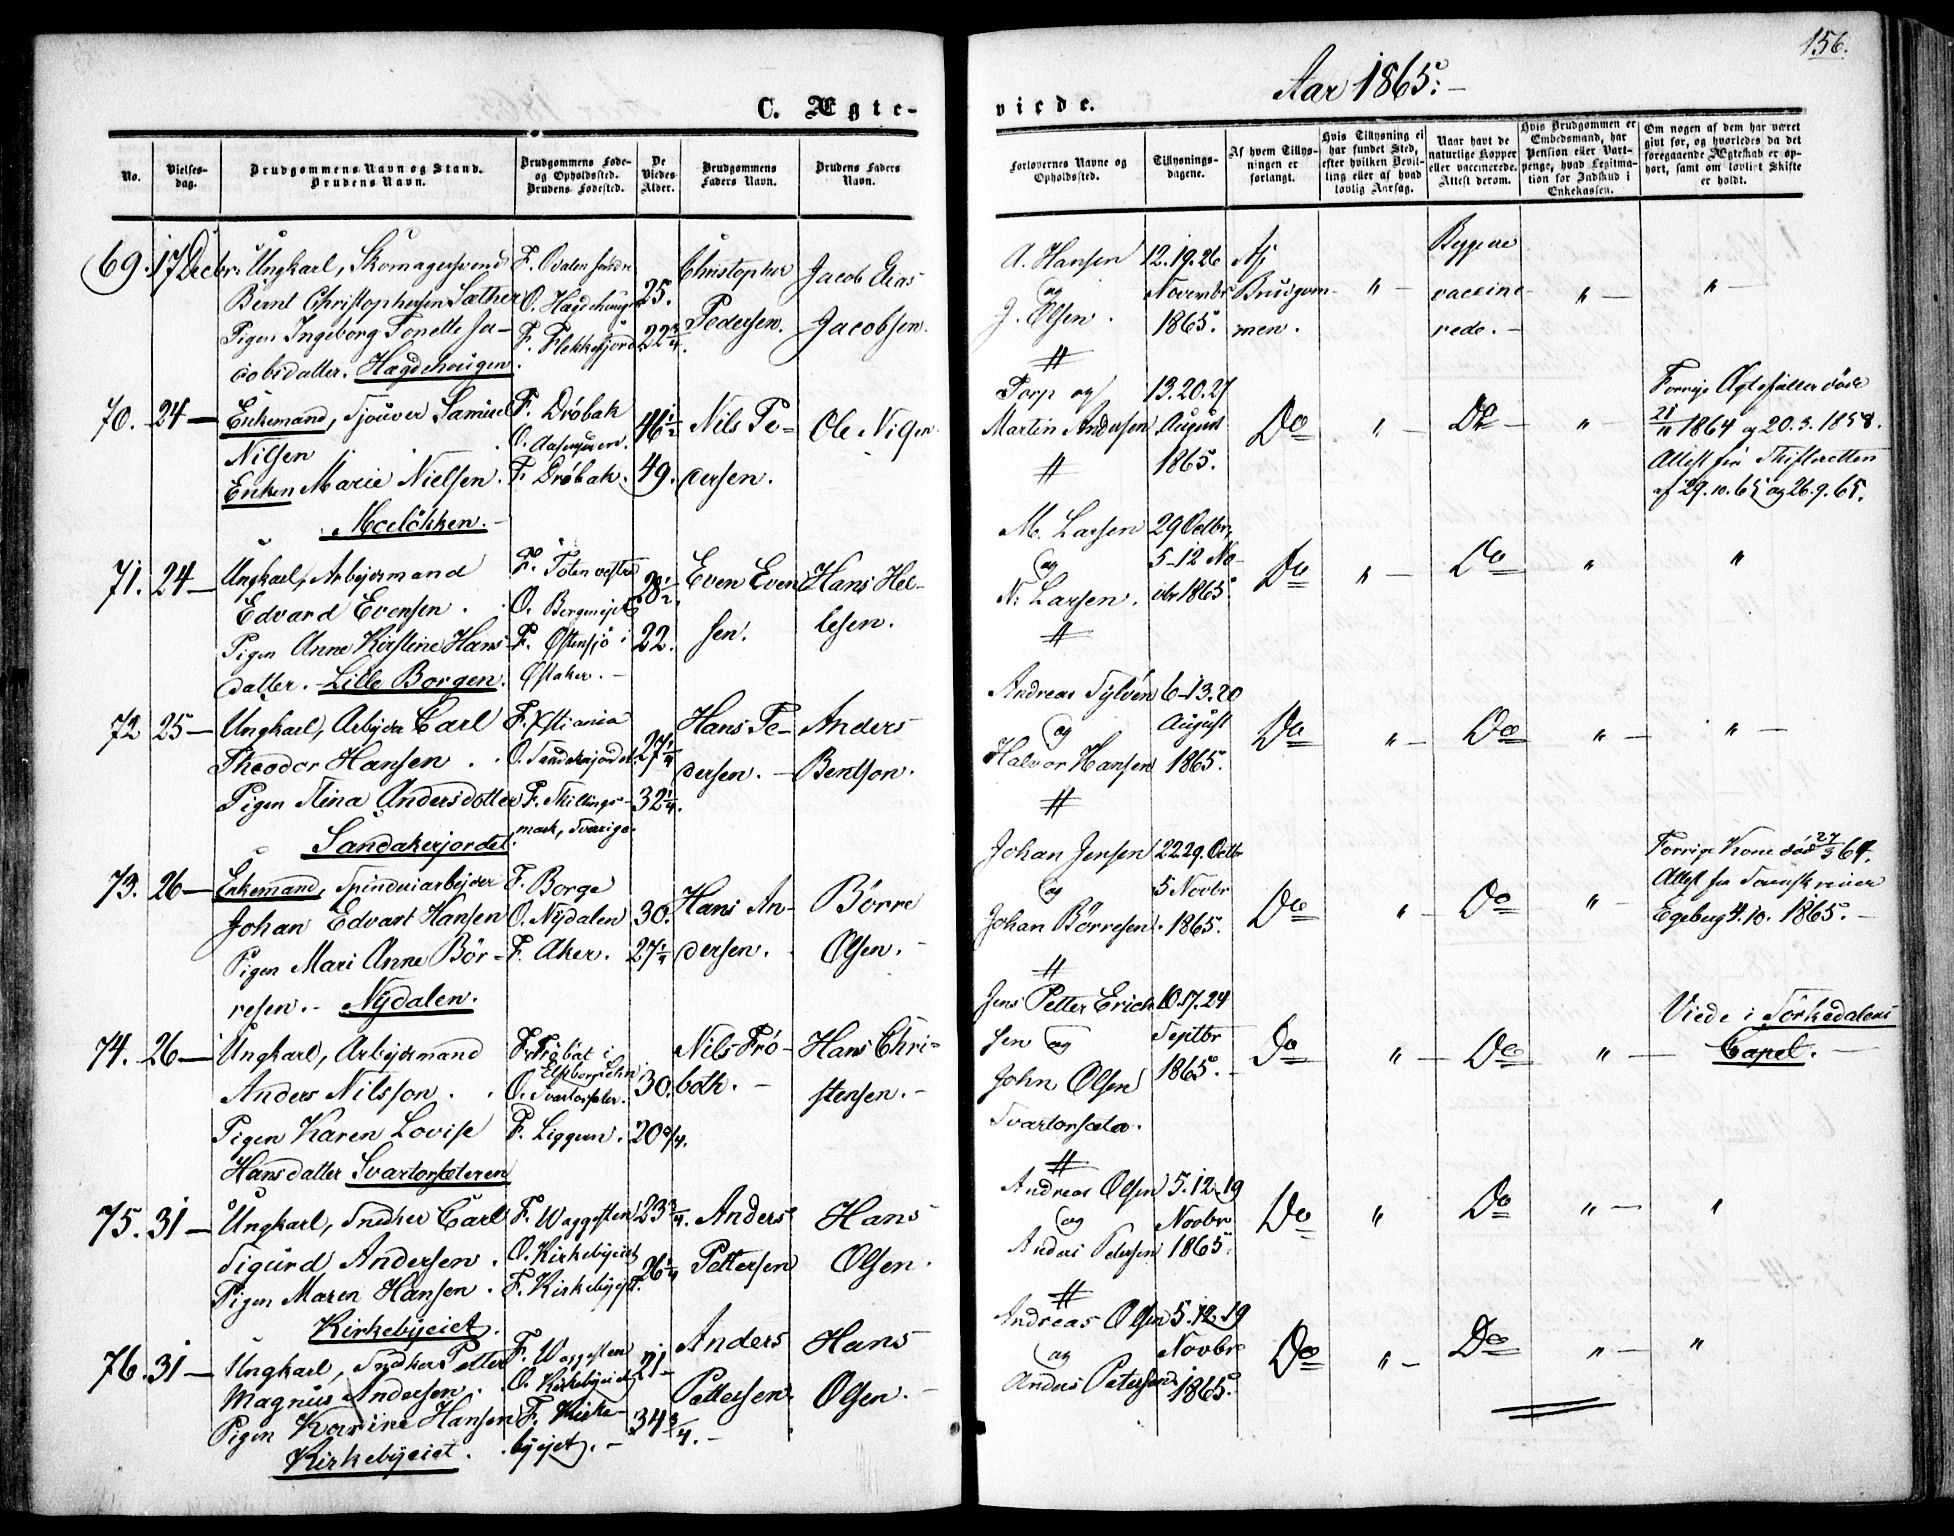 156.
Aar 1865.
C. Ægte-
viede.
No.
Vielses-
dag.
Brudgommens Navn og Stand.
Brudens Navn.
Brudgommens Føde-
og Opholdssted.
Brudens Fødested.
De
Viedes
Alder.
Brudgommens
Faders Navn.
Brudens Faders
Navn.
Forlovernes Navne og
Opholdssted.
Tillysnings-
dagene.
Af hvem Tillys-
ningen er
forlangt.
Hvis Tillysning ei
har fundet Sted,
efter hvilken Bevil-
ling eller af hvad
lovlig Aarsag.
Naar havt de
naturlige Kopper
eller vaccinerede.
Attest derom.
Hvis Brudgommen er
Embedsmand, har
Pension eller Vart-
penge, hvad Legitima-
tion for Indskud i
Enkekassen.
Om nogen af dem har været
givt før, og hvorledes da det
foregaaende Ægteskab er op-
hørt, samt om lovligt Skifte
er holdt.
69. 17 Decbr. Ungkarl, Skomagersvend
Bernt Christophersen Sæther
Pigen Ingeborg Tonette Ja-
cobsdatter. Hægdehougen
F. Odalen søndre
O. Hægdehougen
F. Flekkefjord
25.
22 3/4.
Christopher
Pedersen.
Jacob Elias
Jacobsen.
A. Hansen
og
J. Olsen.
12. 19. 26
Novembr
1865.
Af
Brudgom-
men.
"
Begge
vaccine-
rede.
"
"
70. 24 Enkemand, Sjouver Samuel
Nilsen
Enken Marie Nielsen.
Moeløkken.
F. Drøbak
O. Aasengen.
F. Drøbak.
46 1/2
49.
Nils Pe-
dersen.
Ole
Torp og
Martin Andersen
13. 20. 27
August
1865.
Do
"
Do
"
Forrige Ægtefæller døde
1864 og 20. 3. 1858.
Attest fra Skifteretten
af 29. 10. 65 og 26. 9. 65.
71. 24 Ungkarl, Arbejdsmand
Edvard Evensen.
Pigen Anne Kirstine Hans-
datter. Lille Borgen.
F. Toten vestre
O. Borgenejet
F. Østensjø i
Østaker.
28 1/2.
22.
Even Even-
sen.
Hans Hel-
lesen.
M. Larsen
og
N. Larsen.
29 Octbr,
5-12 No-
vbr 1865.
Do
"
Do
"
"
72 25 Ungkarl, Arbejder Carl
Theodor Hansen.
Pigen Stina Andersdotter
Sandakerjordet.
F. Xstiania
O. Sandakerjordet.
F. Skillings-
mark, Sverige.
27 1/4
32 1/4.
Hans Pe-
dersen.
Anders
Bentson.
Andreas Sylvén
og
Halvor Hansen
6-13. 20
August
1865.
Do
"
Do
"
"
73. 26 Enkemand, Spinderiarbejder
Johan Edvart Hansen
Pigen Mari Anne Bør-
resen. Nydalen.
F. Borge
O. Nydalen
F. Aker.
30.
27 1/4
Hans An-
dersen.
Børre
Olsen.
Johan Jensen
og
Johan Børresen.
22. 29. Octbr
5 Novbr
1865.
Do
"
Do
"
Forrige Kone død 27/3 64.
Attest fra Sorenskriver
Egeberg 4. 10. 1865.
74. 26 Ungkarl, Arbejdsmand
Anders Nilsson.
Pigen Karen Lovise
Hansdatter Svartorsæteren
F. Frøbat i
Elfsborgs Lehn
O. Svartorsæter.
F. Liggern.
30.
20 3/4.
Nils Frö-
both.
Hans Chri-
stensen.
Jens Petter Erick-
sen og
John Olsen
Svartorsæter.
10. 17. 24
Septbr
1865.
Do
"
Do
"
Viede i Sørkedalens
Capel.
75. 31 Ungkarl, Snedker Carl
Sigurd Andersen.
Pigen Maren Hansen.
Kirkebyeiet.
F. Waggesten
O. Kirkebyeiet
F. Kirkebyejet.
23 3/4.
26 1/4
Anders
Pettersen
Hans
Olsen.
Andreas Olsen
og
Anders Petersen
5. 12. 19
Novbr
1865.
Do
"
Do
"
"
76. 31 Ungkarl, Snedker Petter
Magnus Andersen.
Pigen Karine Hansen
Kirkebyeiet.
F. Waggesten
O. Kirkebyeiet
F. Kirke-
byejet.
21
34 3/4.
Anders
Pettersen
Hans
Olsen.
Andreas Olsen
og
Anders Petersen
5. 12. 19
Novbr
1865.
Do
"
Do
"
"